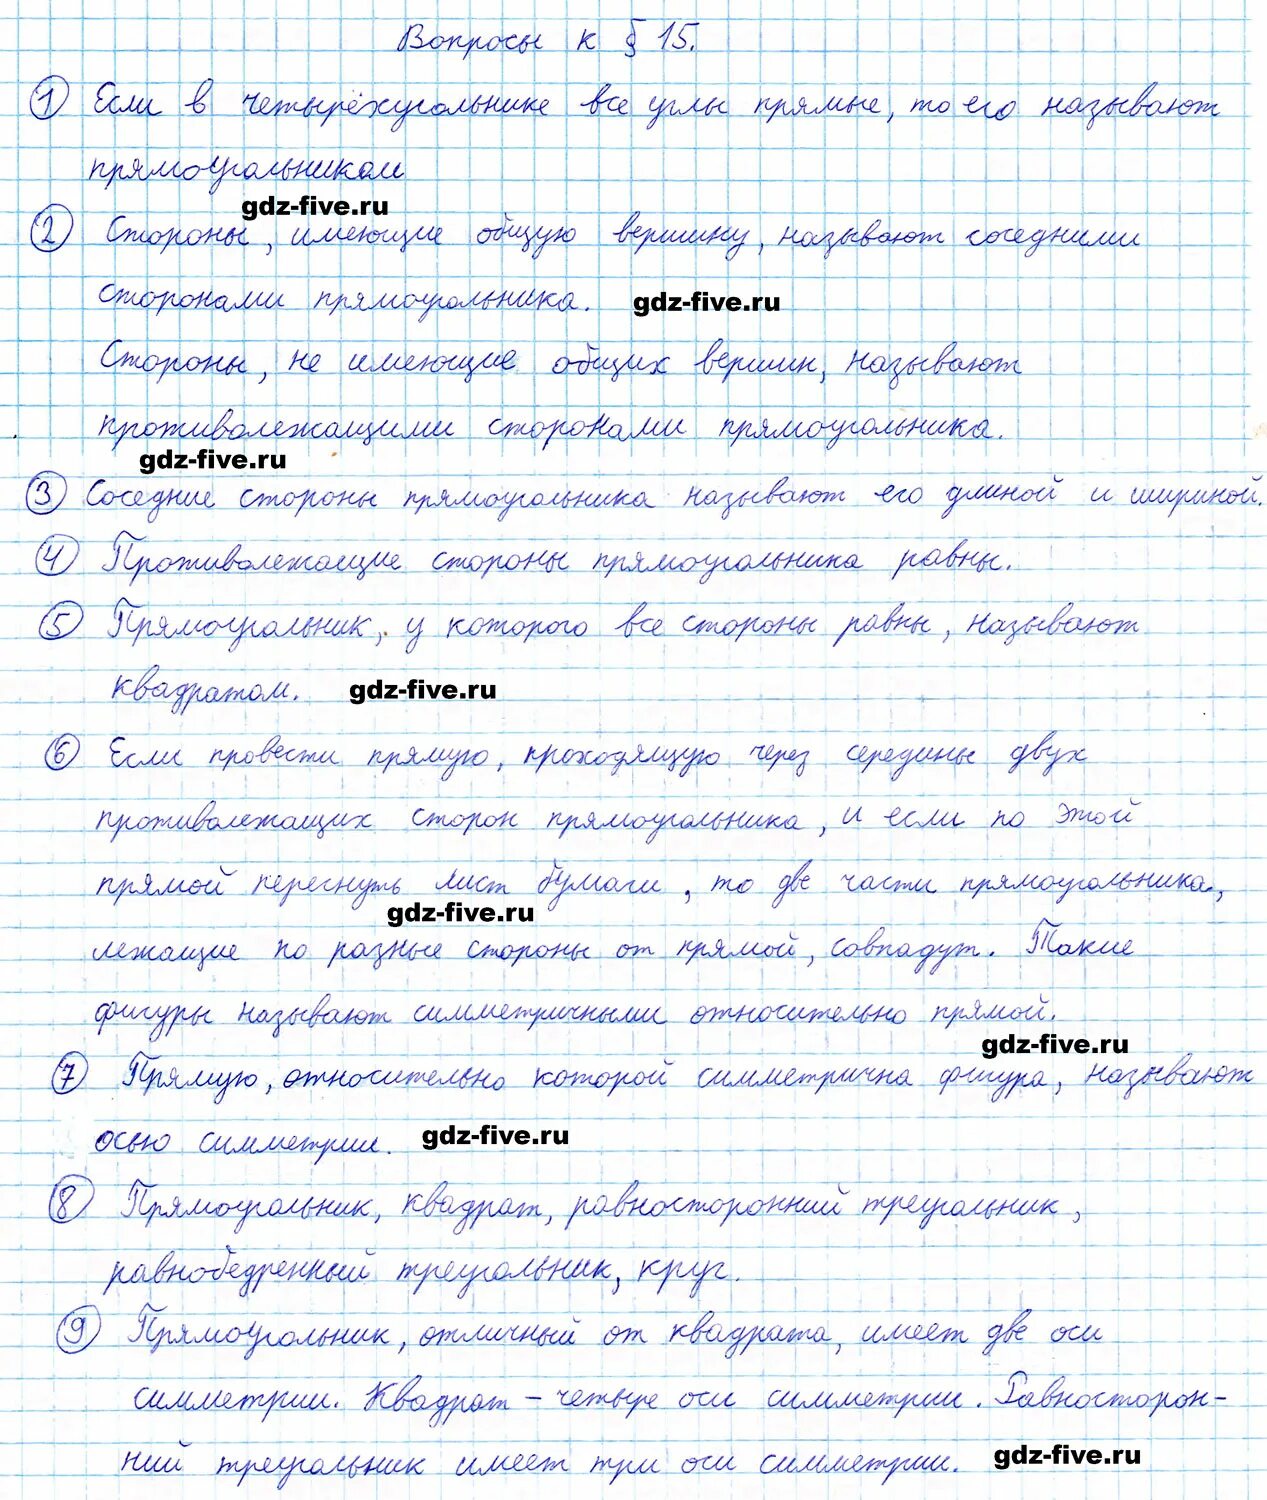 Вопросы к § 15.
1 Если в четырёхугольнике все углы прямые, то его называют
прямоугольником
gdz-five.ru
2 Стороны, имеющие общую вершину, называют соседними
сторонами прямоугольника. gdz-five.ru
Стороны, не имеющие общих вершин, называют
противолежащими сторонами прямоугольника.
gdz-five.ru
3 Соседние стороны прямоугольника называют его длиной и шириной.
4 Противолежащие стороны прямоугольника равны.
5 Прямоугольник, у которого все стороны равны, называют
квадратом. gdz-five.ru
6 Если провести прямую, проходящую через середины двух
противолежащих сторон прямоугольника, и если по этой
прямой перегнуть лист бумаги, то две части прямоугольника,
gdz-five.ru
лежащие по разные стороны от прямой, совпадут. Такие
фигуры называют симметричными относительно прямой.
gdz-five.ru
7 Прямую, относительно которой симметрична фигура, называют
осью симметрии. gdz-five.ru
8 Прямоугольник, квадрат, равносторонний треугольник,
равнобедренный треугольник, круг.
9 Прямоугольник, отличный от квадрата, имеет две оси
симметрии. Квадрат - четыре оси симметрии. Равносторон-
ний треугольник имеет три оси симметрии. gdz-five.ru